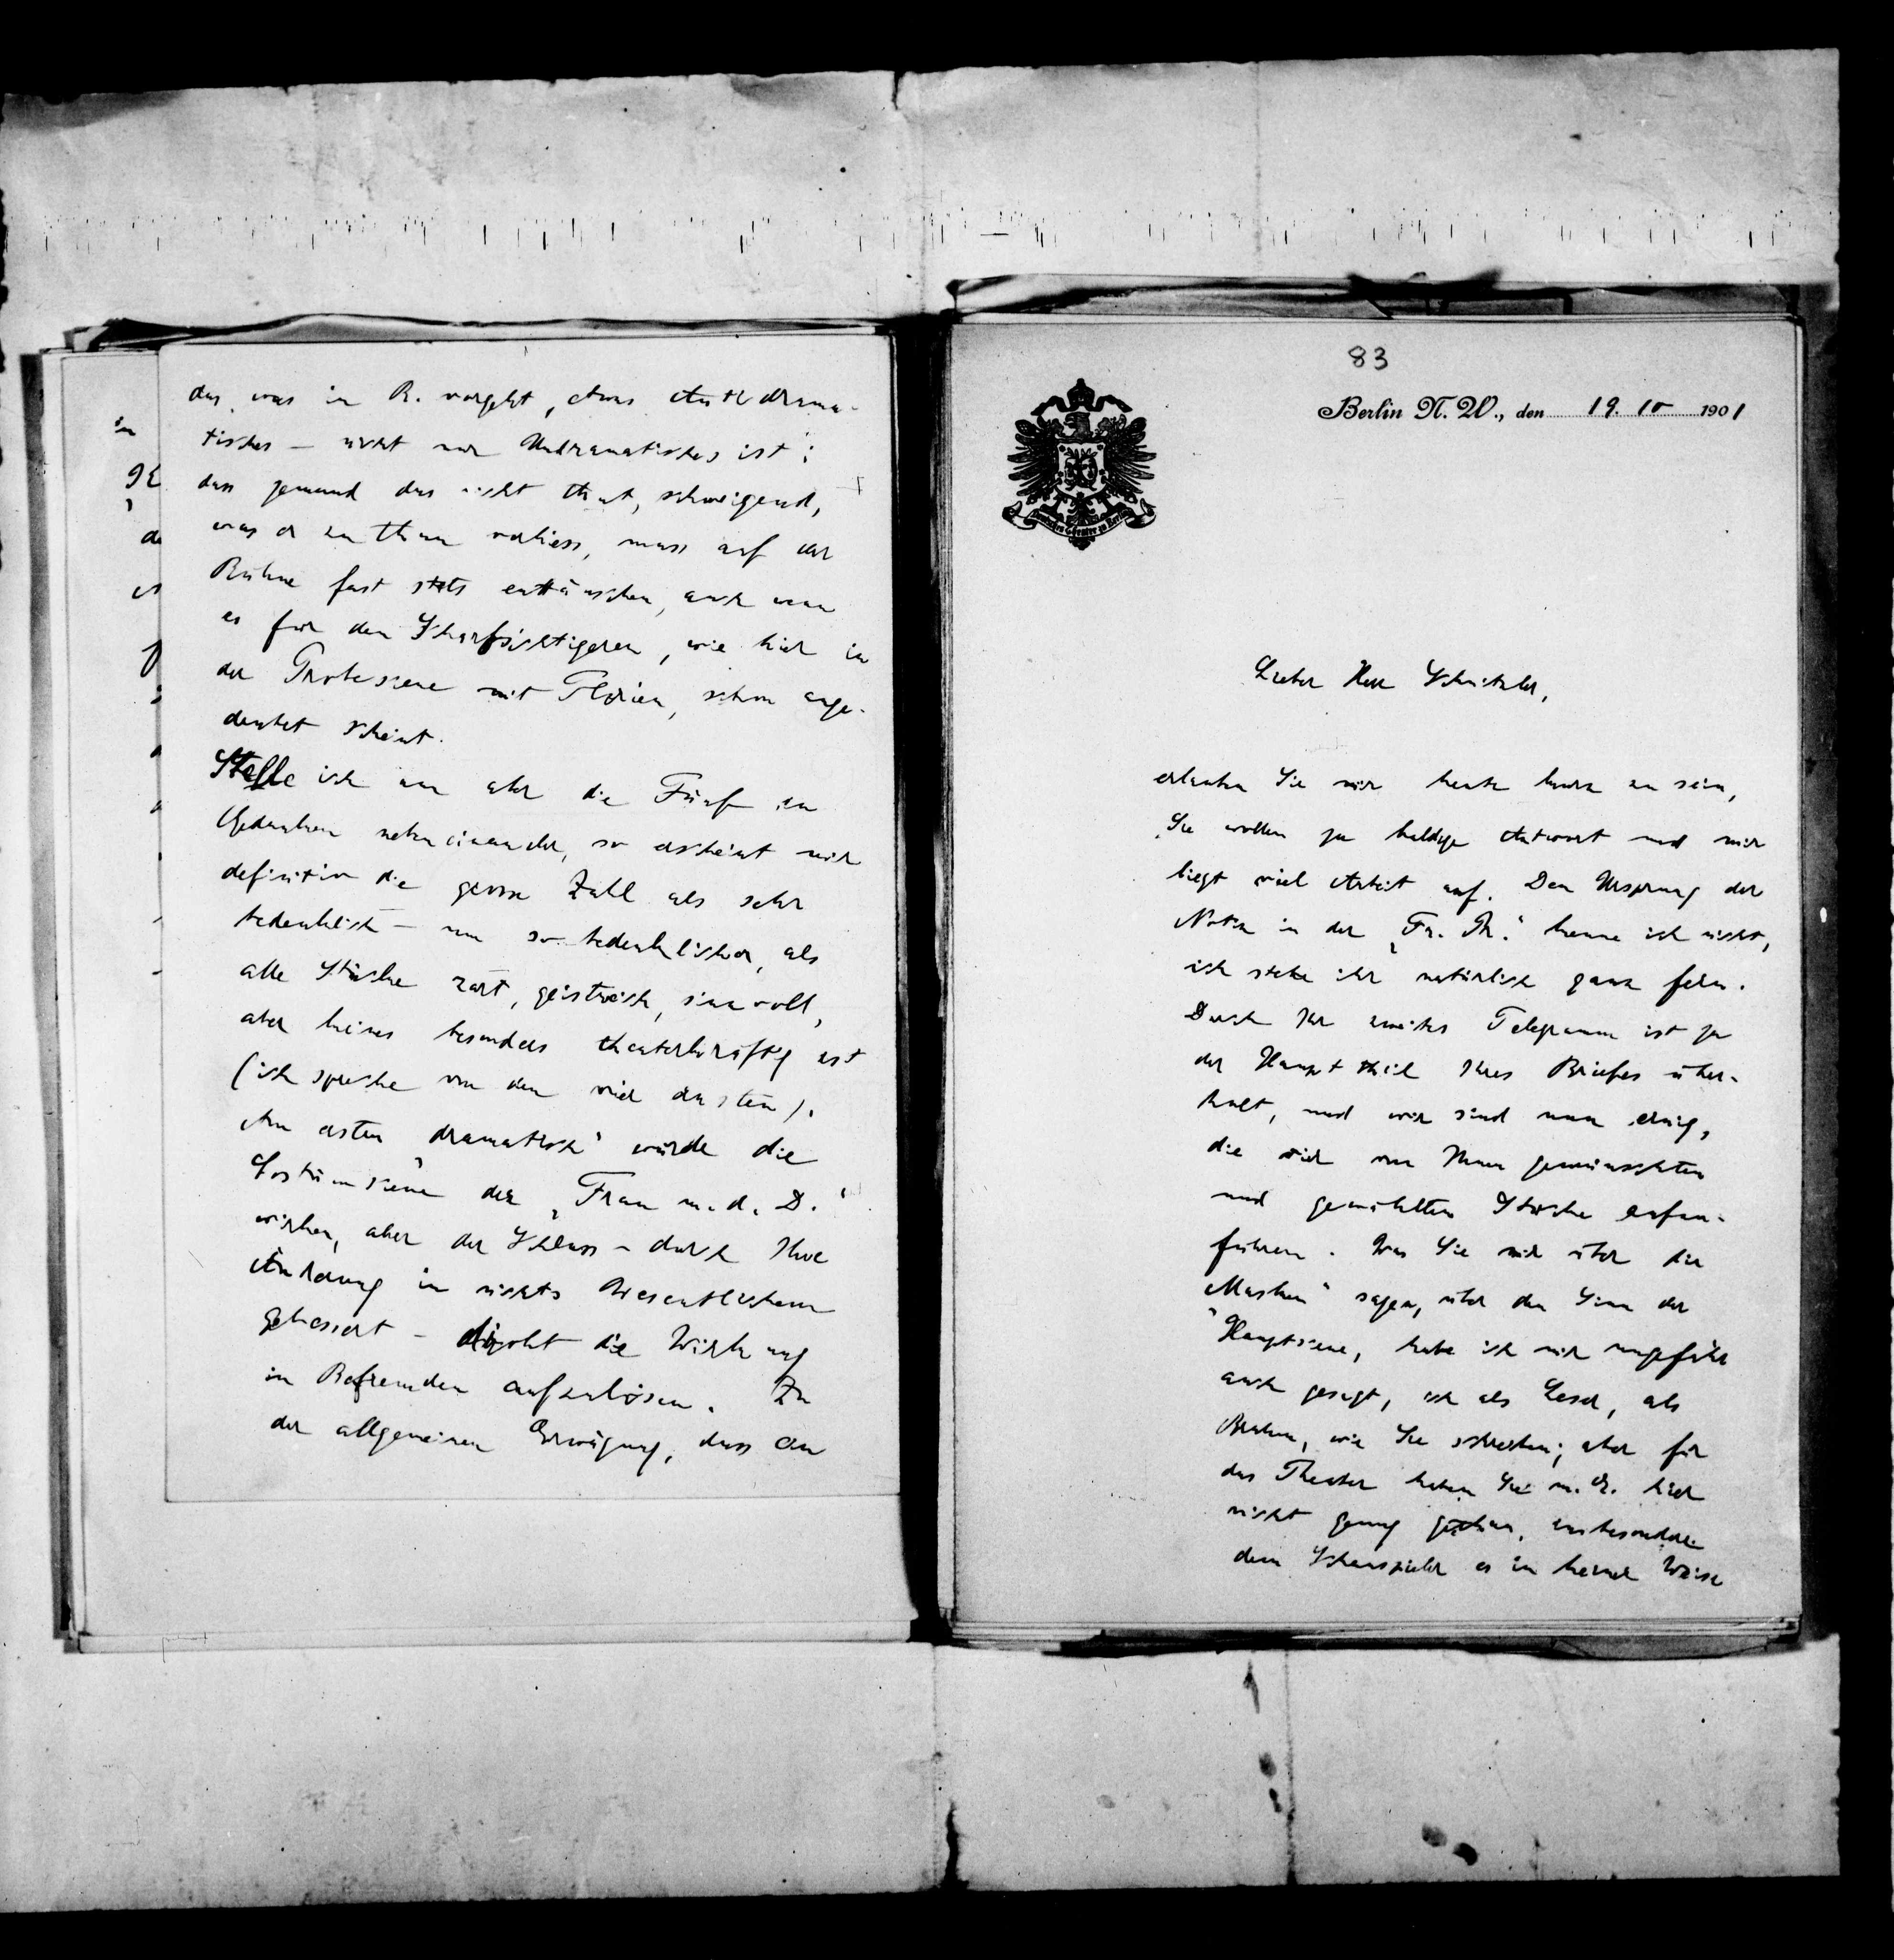 das, was in R. vorgeht, etwas Antidrama-
tisches – nicht nur Undramatisches ist;
dass jemand das nicht thut, schweigend,
was er zu thun verhiess, muss auf der
Bühne fast stets enttäuschen, auch wenn
es für den Scharfsichtigeren, wie hier in
der Probescene mit Florian, schon ange-
deutet scheint.
Stelle ich nun aber die Fünf in
Gedanken nebeneinander, so erscheint mir
definitiv die grosse Zahl als sehr
bedenklich – um so bedenklicher, als
alle Stücke zart, geistreich, sinnvoll,
aber keines besonders theaterkräftig ist
(ich spreche von den vier ersten).
Am ersten „dramatisch“ würde die
Costümscene der „Frau m. d. D.“
wirken, aber der Schluss – durch Ihre
Änderung in nichts Wesentlichem
gebessert – droht die Wirkung
in Befremden aufzulösen. Zu
der allgemeinen Erwägung, dass an
83
Berlin N. W., den 19. 10 1901
Deutsches Theater zu Berlin
Lieber Herr Schnitzler,
erlauben Sie mir heute kurz zu sein,
Sie wollen ja baldige Antwort und mir
liegt viel Arbeit auf. Den Ursprung der
Notiz in der „Fr. Pr.“ kenne ich nicht,
ich stehe ihr natürlich ganz fern.
Durch Ihr zweites Telegramm ist ja
der Haupttheil Ihres Briefes über-
holt, und wir sind nun einig,
die vier von Ihnen gewünschten
und gewählten Stücke aufzu-
führen. Was Sie mir über die
„Masken“ sagen, über den Sinn der
Hauptscene, habe ich mir ungefähr
auch gesagt, ich als Leser, als
Brahm, wie Sie schreiben; aber für
das Theater haben Sie m. E. hier
nicht genug gethan, insbesondere
dem Schauspieler es in keiner Weise